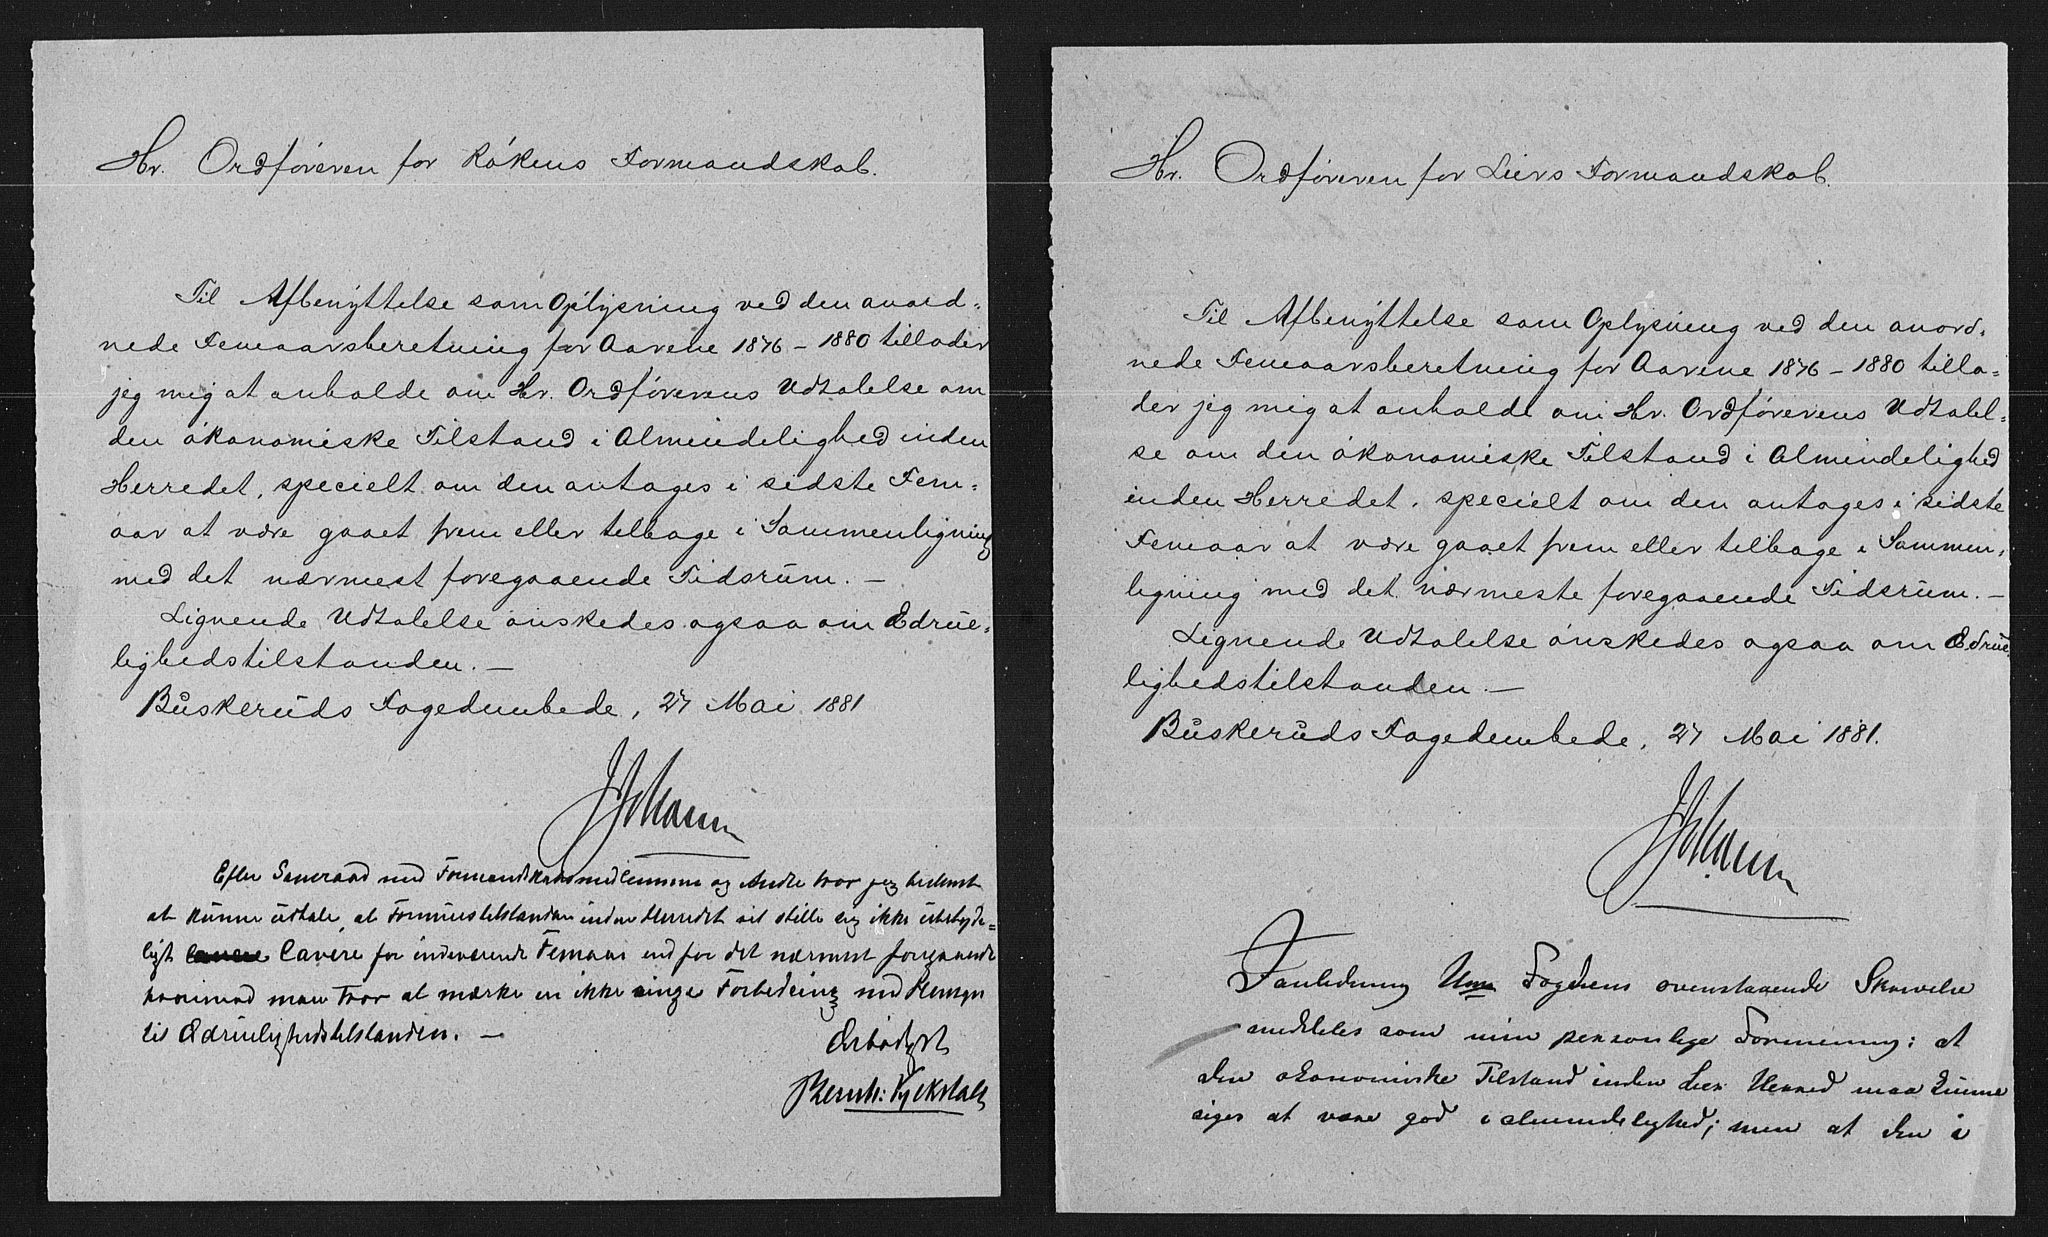 Hr. Ordføreren for Røkens Formandskab.
Til Afbenyttelse som Oplysning ved den anord=
nede Femaarsberetning for Aarene 1876 – 1880 tillader
jeg mig at anholde om Hr. Ordførerens Udtalelse om
den økonomiske Tilstand i Almindelighed inden
Herredet, specielt om den antages i sidste Fem=
aar at være gaaet frem eller tilbage i Sammenligning
med det nærmest foregaaende Tidsrum. –
Lignende Udtalelse ønskedes ogsaa om Ædrue=
lighedstilstanden. –
Buskeruds Fogedembede, 27 Mai 1881
Efter Samraad med Formandskabsmedlemmerne og Andre tror jeg bestemt
at kunne udtale, at Formuestilstanden inden Herredet vil stille sig ikke ubetyde=
ligt lavere for indeværende Femaar end for det nærmest foregaaende
hvorimod man tror at mærke en ikke ringe Forbedring med Hensyn
til Ædruelighedstilstanden. –
Ærbødigst
Hr. Ordføreren for Liers Formandskab.
Til Afbenyttelse som Oplysning ved den anord=
nede Femaarsberetning for Aarene 1876 – 1880 tilla=
der jeg mig at anholde om Hr. Ordførerens Udtalel=
se om den økonomiske Tilstand i Almindelighed
inden Herredet, specielt om den antages i sidste
Femaar at være gaaet frem eller tilbage i Sammen=
ligning med det nærmeste foregaaende Tidsrum. –
Lignende Udtalelse ønskedes ogsaa om Ædrue=
lighedstilstanden. –
Buskeruds Fogedembede, 27 Mai 1881.
I Anledning Fogdens ovenstaaende Skrivelse
meddeles som min personlige Formening: at
den økonomiske Tilstand inden Lier Herred maa kunne
siges at være god i almindelighed; men at den i